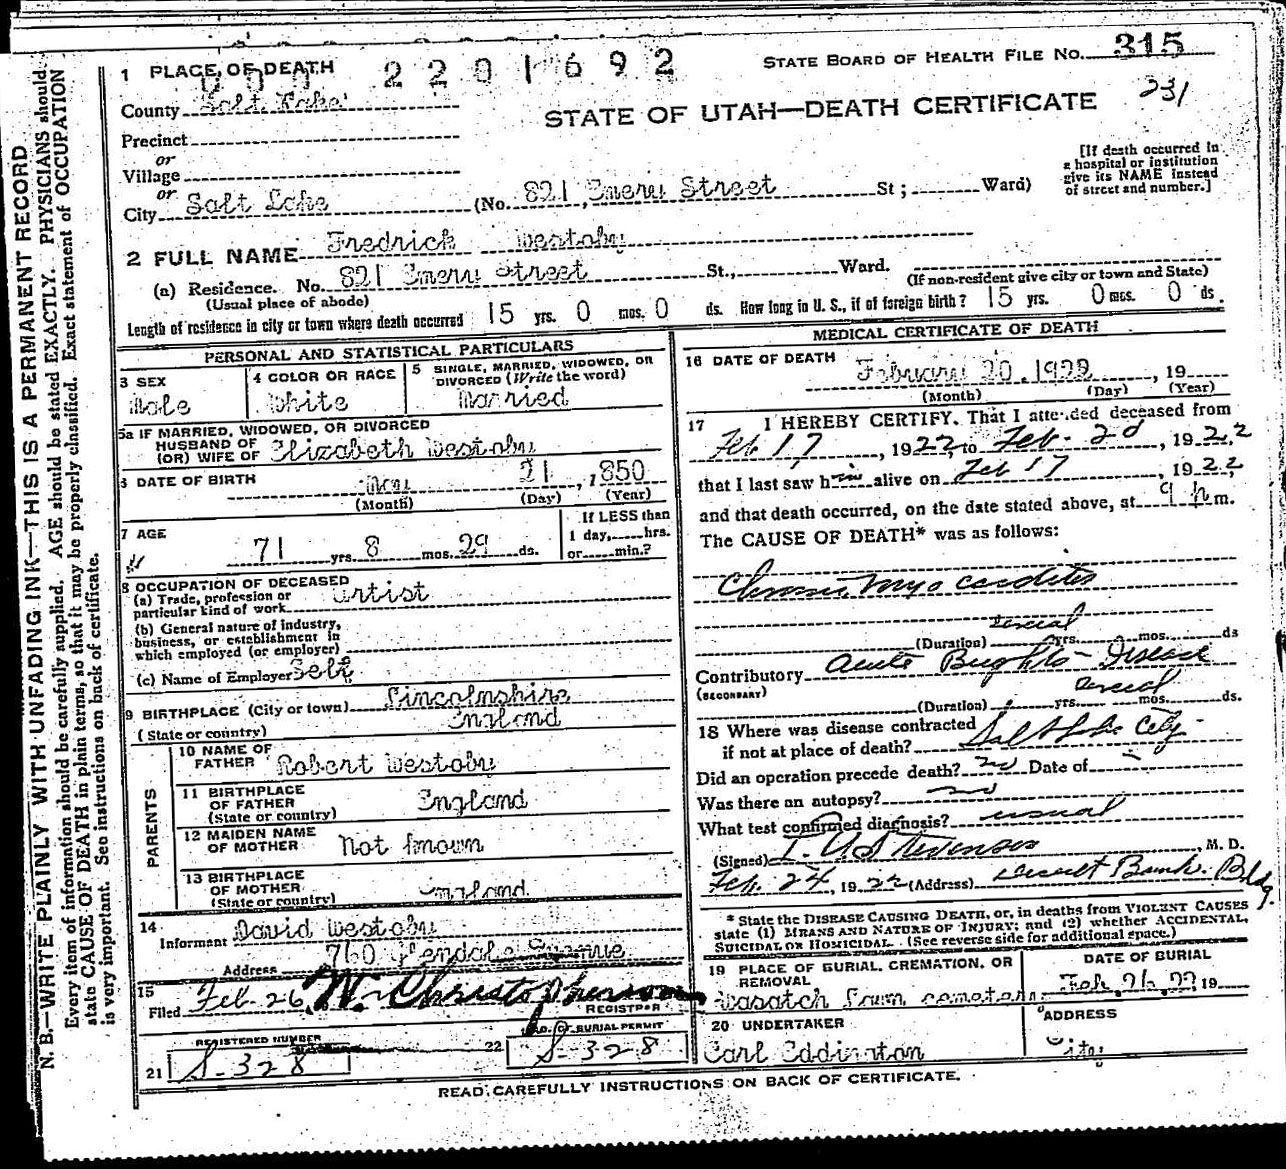 N. B.—WRITE PLAINLY WITH UNFADING INK—THIS IS A PERMANENT RECORD
Every item of information should be carefully supplied. AGE should be stated EXACTLY. PHYSICIANS should
state CAUSE OF DEATH in plain terms, so that it may be properly classified. Exact statement of OCCUPATION
is very important. See instructions on back of certificate.
2201692
STATE BOARD OF HEALTH FILE NO. 315
231
1 PLACE OF DEATH
County Salt Lake
STATE OF UTAH—DEATH CERTIFICATE
Precinct
or
Village
or
City Salt Lake (No. 821, Emery Street St; Ward)
[If death occurred in
a hospital or institution
give its NAME instead
of street and number.]
2 FULL NAME Fredrick Westoby
(a) Residence. No. 821 Emery Street St., Ward.
(Usual place of abode) (If non-resident give city or town and State)
Length of residence in city or town where death occurred 15 yrs. 0 mos. 0 ds. How long in U. S., if of foreign birth? 15 yrs. 0 mos. 0 ds.
PERSONAL AND STATISTICAL PARTICULARS
3 SEX
Male
4 COLOR OR RACE
White
5 SINGLE, MARRIED, WIDOWED, OR
DIVORCED (Write the word)
Married
5a IF MARRIED, WIDOWED, OR DIVORCED
HUSBAND OF
(OR) WIFE OF Elizabeth Westoby
6 DATE OF BIRTH May 21, 1850
(Month) (Day) (Year)
7 AGE
71 yrs. 8 mos. 29 ds.
If LESS than
1 day, hrs.
or min.?
8 OCCUPATION OF DECEASED
(a) Trade, profession or
particular kind of work Artist
(b) General nature of industry,
business, or establishment in
which employed (or employer)
(c) Name of Employer Self
9 BIRTHPLACE (City or town) Lincolnshire
(State or country) England
PARENTS
10 NAME OF
FATHER Robert Westoby
11 BIRTHPLACE
OF FATHER
(State or country) England
12 MAIDEN NAME
OF MOTHER Not known
13 BIRTHPLACE
OF MOTHER
(State or country) England
14
Informant David Westoby
Address 760 Glendale Avenue
15
Filed Feb-26, W. Christopherson
REGISTRAR
REGISTERED NUMBER
21 S-328
NO. OF BURIAL PERMIT
22 S-328
MEDICAL CERTIFICATE OF DEATH
16 DATE OF DEATH
February 20, 1922, 19
(Month) (Day) (Year)
17 I HEREBY CERTIFY, That I attended deceased from
Feb 17, 1922, to Feb-20, 1922
that I last saw him alive on Feb 17, 1922
and that death occurred, on the date stated above, at 9 p m.
The CAUSE OF DEATH* was as follows:
Chronic Myocarditis
several
(Duration) yrs. mos. ds
Contributory Acute Brights Disease
(SECONDARY)
several
(Duration) yrs. mos. ds.
18 Where was disease contracted
if not at place of death? Salt Lake City
Did an operation precede death? no Date of
Was there an autopsy? no
What test confirmed diagnosis? usual
(Signed) Stevenson, M. D.
Feb. 24, 1922 (Address) Deseret Bank Bldg.
* State the DISEASE CAUSING DEATH, or, in deaths from VIOLENT CAUSES
state (1) MEANS AND NATURE OF INJURY; and (2) whether ACCIDENTAL,
SUICIDAL OR HOMICIDAL. (See reverse side for additional space.)
19 PLACE OF BURIAL, CREMATION, OR
REMOVAL
Wasatch Lawn cemetery
DATE OF BURIAL
Feb. 26, 22, 19
20 UNDERTAKER
Carl Eddington
ADDRESS
City
READ CAREFULLY INSTRUCTIONS ON BACK OF CERTIFICATE.